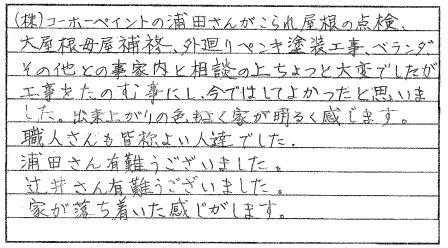 (株)コーホーペイントの浦田さんがこられ屋根の点検、
大屋根母屋補修、外廻りペンキ塗装工事、ベランダ
その他との事家内と相談の上ちょっと大変でしたが
工事をたのむ事にし、今ではしてよかったと思いま
した。出来上がりの色もよく家が明るく感じます。
職人さんも皆称よい人達でした。
浦田さん有難うございました。
辻井さん有難うございました。
家が落ち着いた感じがします。